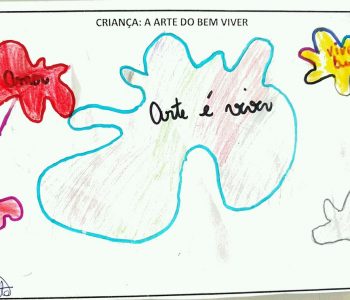 CRIANÇA: A ARTE DO BEM VIVER
Amor
Arte é viver